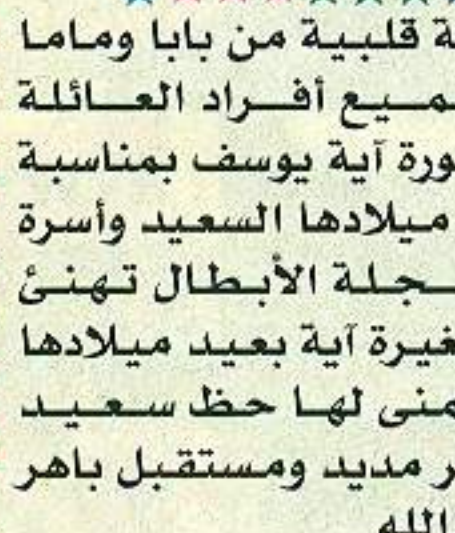 ة قلبية من بابا وماما
مـيع أفـراد العـائلة
ورة آية يوسف بمناسبة
ميلادها السعيد وأسرة
جلة الأبطال تهنئ
غيرة آية بعيد ميلادها
منى لها حظ سعيد
ر مديد ومستقبل باهر
الله